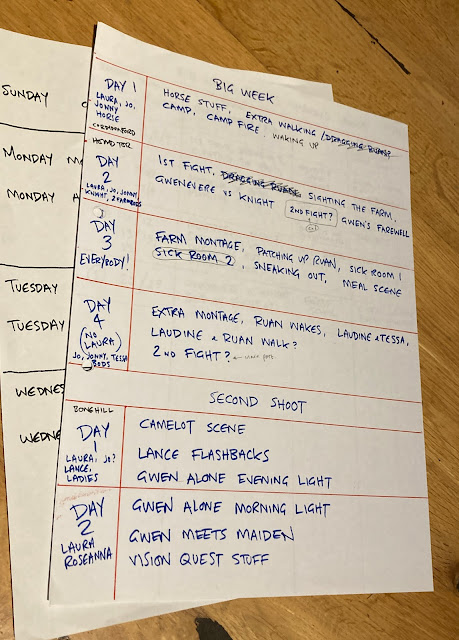 SUNDAY
MONDAY
MONDAY
TUESDAY
TUESDAY
WEDNES
WEDNE
BIG WEEK
DAY 1
LAURA, JO,
JONNY
HORSE
HORSE STUFF, EXTRA WALKING / DRAGGING RUANS?
CAMP, CAMP FIRE, WAKING UP
DAY
2
LAURA, JO, JONNY
1ST FIGHT, DRAGGING RUANE, SIGHTING THE FARM,
GWENEVERE VS KNIGHT 2ND FIGHT? GWEN'S FAREWELL
DAY
3
EVERYBODY!
FARM MONTAGE, PATCHING UP RUAN, SICK ROOM 1
SICK ROOM 2, SNEAKING OUT, MEAL SCENE
DAY
4
(NO
LAURA)
JO, JONNY, TESSA
BODS
EXTRA MONTAGE, RUAN WAKES, LAUDINE & TESSA,
LAUDINE & RUAN WALK?
2ND FIGHT?
SECOND SHOOT
BONEHILL
DAY
1
LAURA, JO?
LANCE,
LADIES
CAMELOT SCENE
LANCE FLASHBACKS
GWEN ALONE EVENING LIGHT
DAY
2
LAURA
ROSEANNA
GWEN ALONE MORNING LIGHT
GWEN MEETS MAIDEN
VISION QUEST STUFF